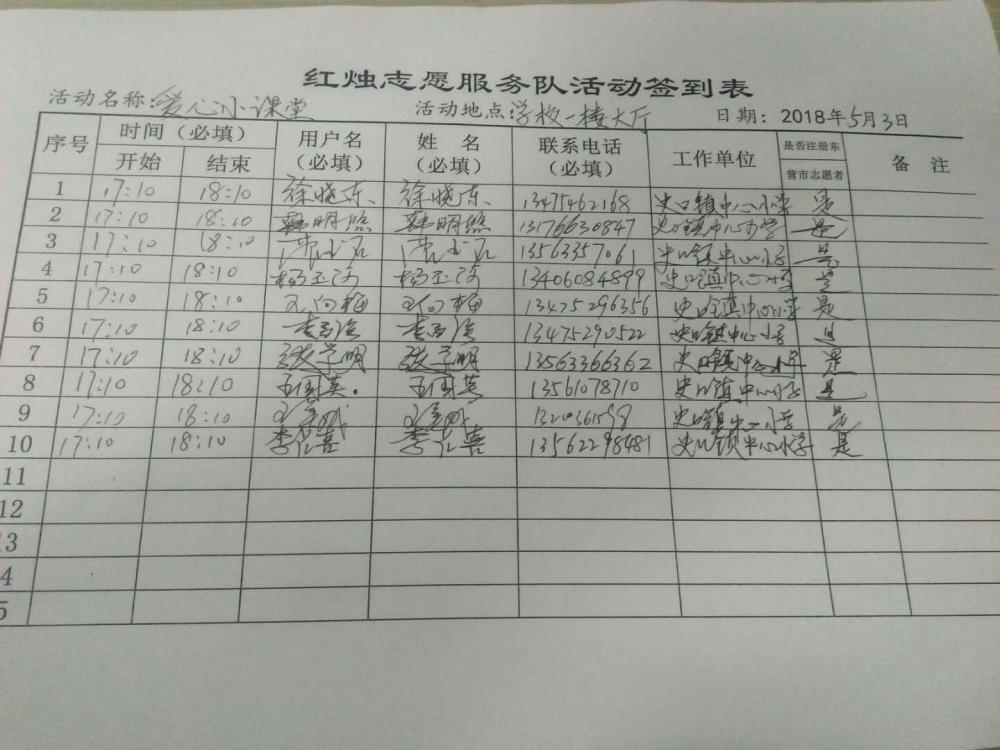 红烛志愿服务队活动签到表
活动名称:爱心小课堂 活动地点:学校一楼大厅 日期: 2018年5月3日
序号 时间(必填) 用户名(必填) 姓 名(必填) 联系电话(必填) 工作单位 是否注册东营市志愿者 备 注
开始 结束
1 17:10 18:10 徐晓东 徐晓东 13475462168 史口镇中心小学 是
2 17:10 18:10 韩明悠 韩明悠 13176630847 史口镇中心小学 是
3 17:10 18:10 13563357061 史口镇中心小学 是
4 17:10 18:10 13406084899 史口镇中心小学 是
5 17:10 18:10 13475296356 史口镇中心小学 是
6 17:10 18:10 13475290522 史口镇中心小学 是
7 17:10 18:10 张学明 张学明 13563366362 史口镇中心小学 是
8 17:10 18:10 王国英 王国英 13561078710 史口镇中心小学 是
9 17:10 18:10 史口镇中心小学 是
10 17:10 18:10 13562298481 史口镇中心小学 是
11
12
13
4
5